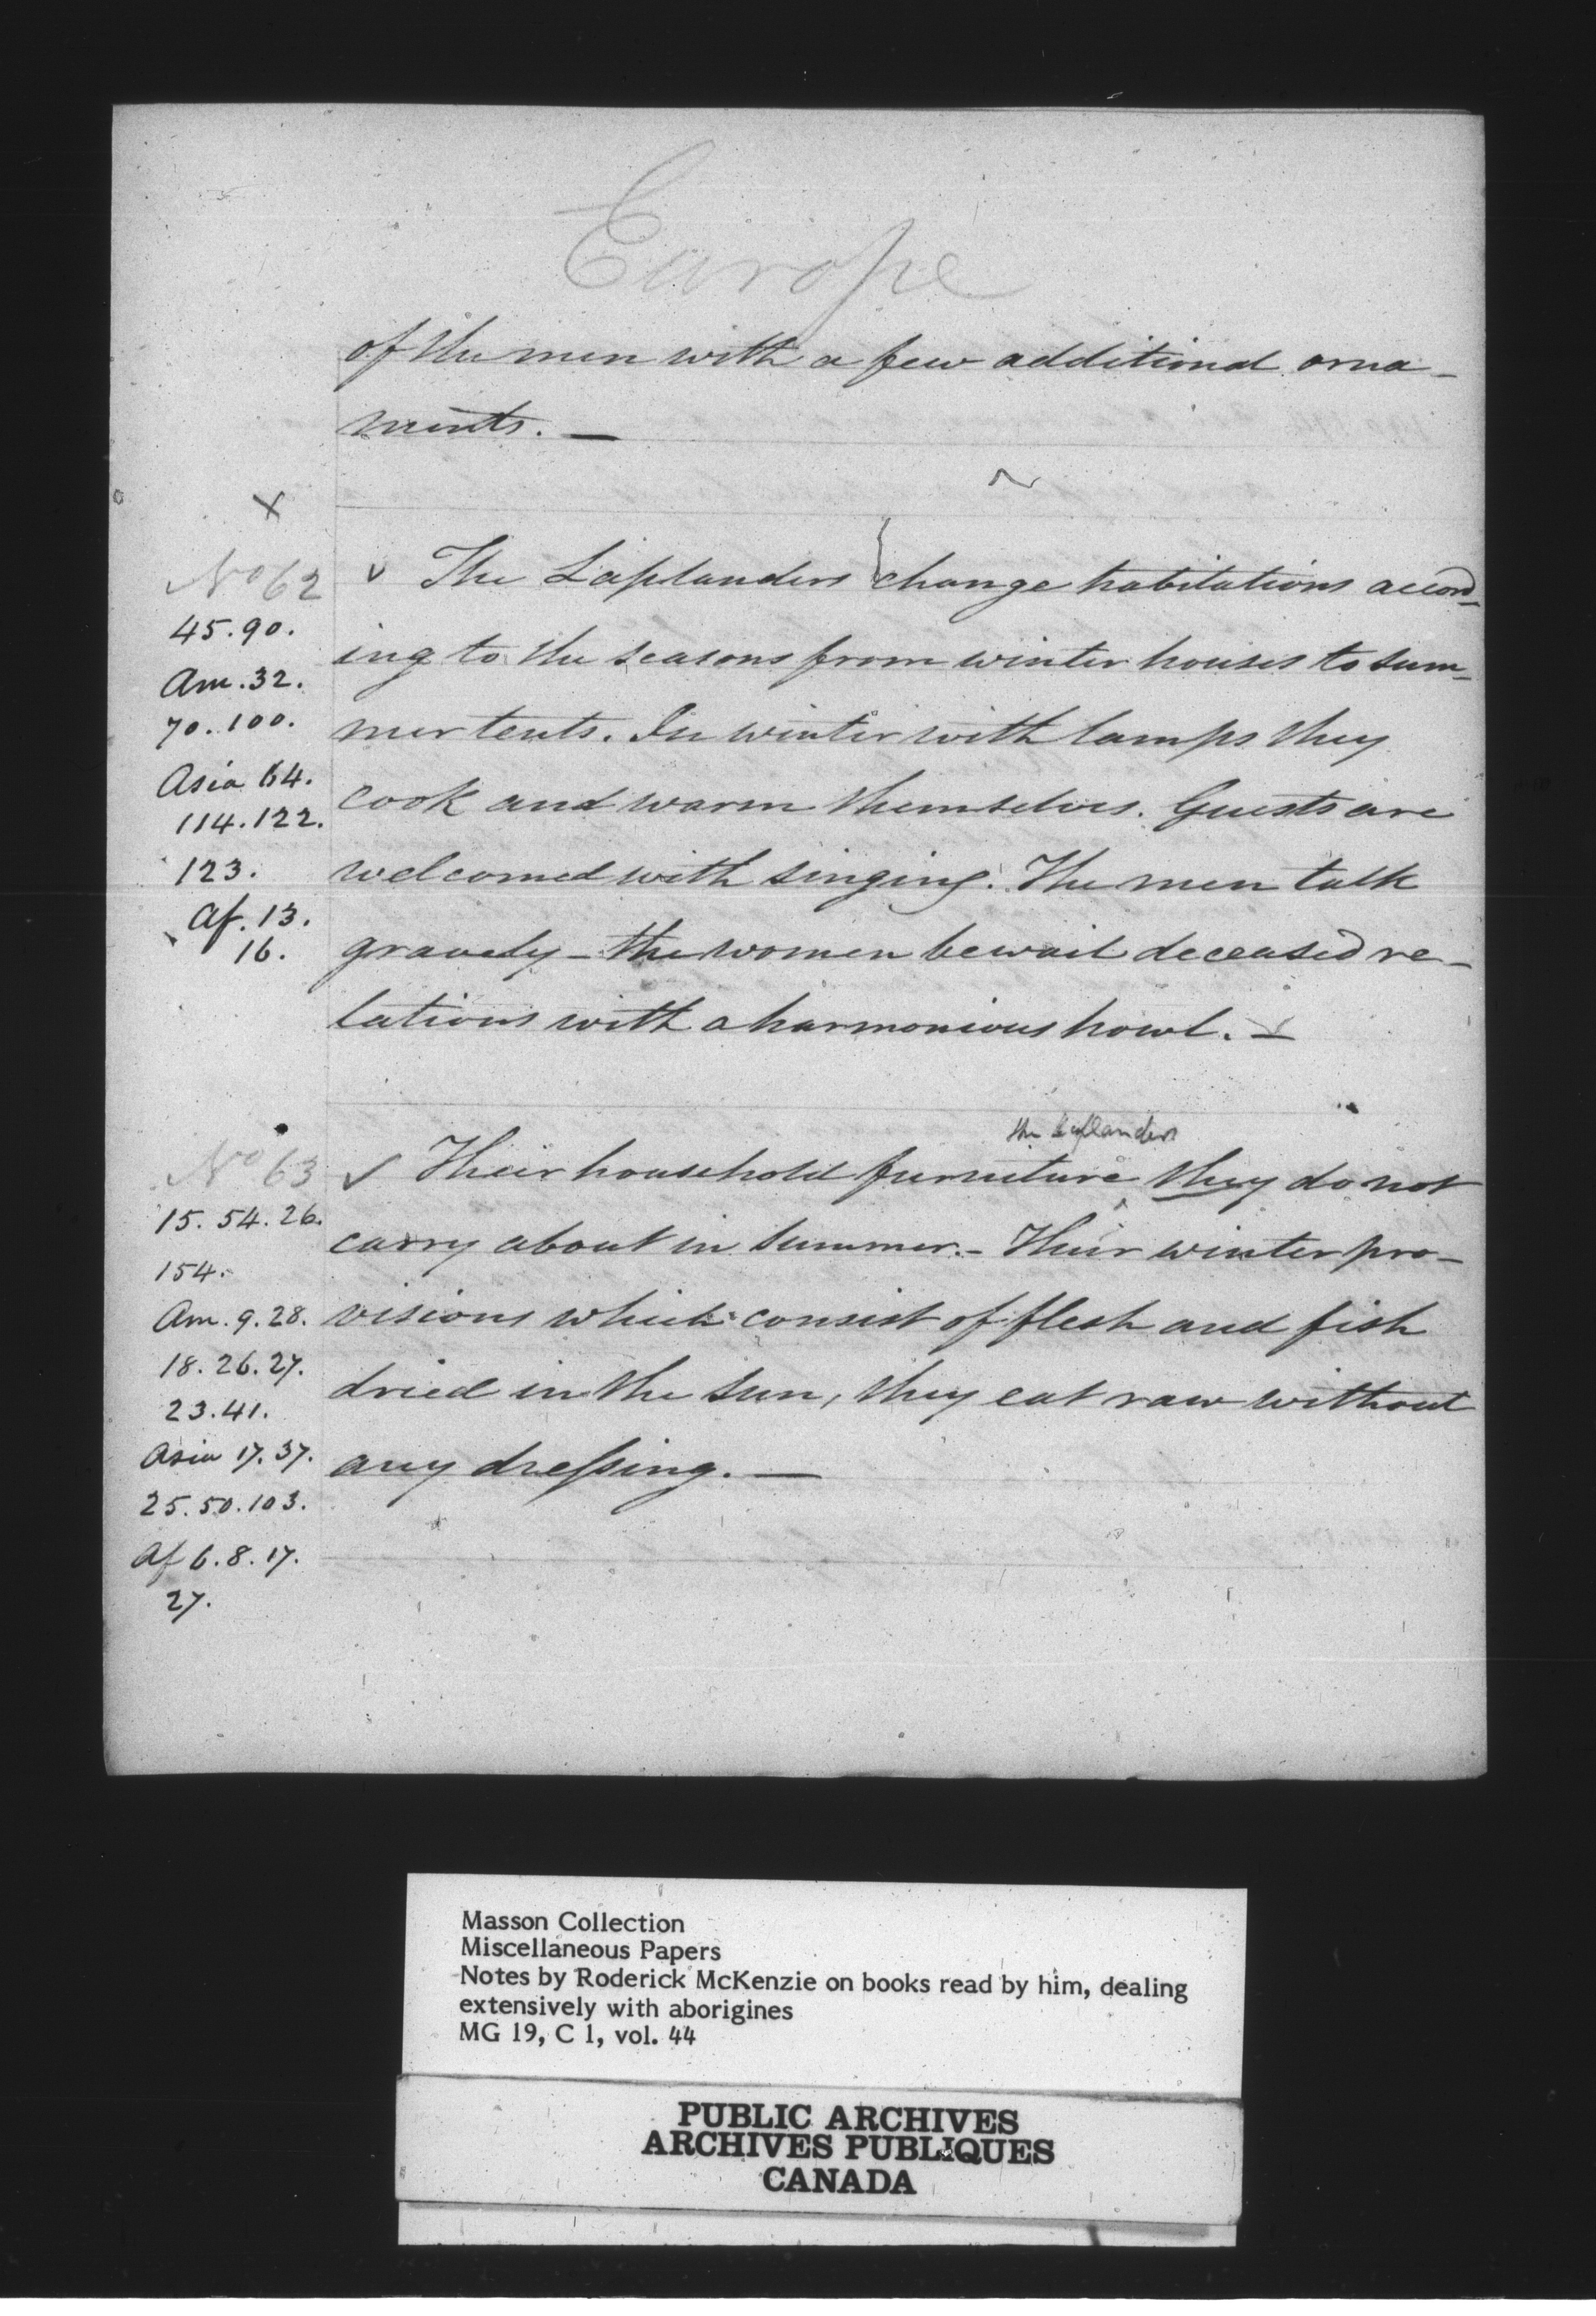 Europe
of the men with a few additional orna-
ments. —
x
No 62
45. 90.
Am. 32.
70. 100.
Asia 64.
114. 122.
123.
Af. 13.
16.
v The Laplanders change habitations accord-
ing to the seasons from winter houses to sum-
mer tents. In winter with lamps they
cook and warm themselves. Guests are
welcomed with singing. The men talk
gravely - the women bewail deceased re-
lations with a harmonious howl. —
No 63
15. 54. 26.
154.
Am. 9. 28.
18. 26. 27.
23. 41.
Asia 17. 37.
25. 50. 103.
Af 6. 8. 17.
27.
the Laplanders
v Their household furniture ^ they do not
carry about in summer. - Their winter pro-
visions which consist of flesh and fish
dried in the sun, they eat raw without
any dressing. —
Masson Collection
Miscellaneous Papers
Notes by Roderick McKenzie on books read by him, dealing
extensively with aborigines
MG 19, C 1, vol. 44
PUBLIC ARCHIVES
ARCHIVES PUBLIQUES
CANADA